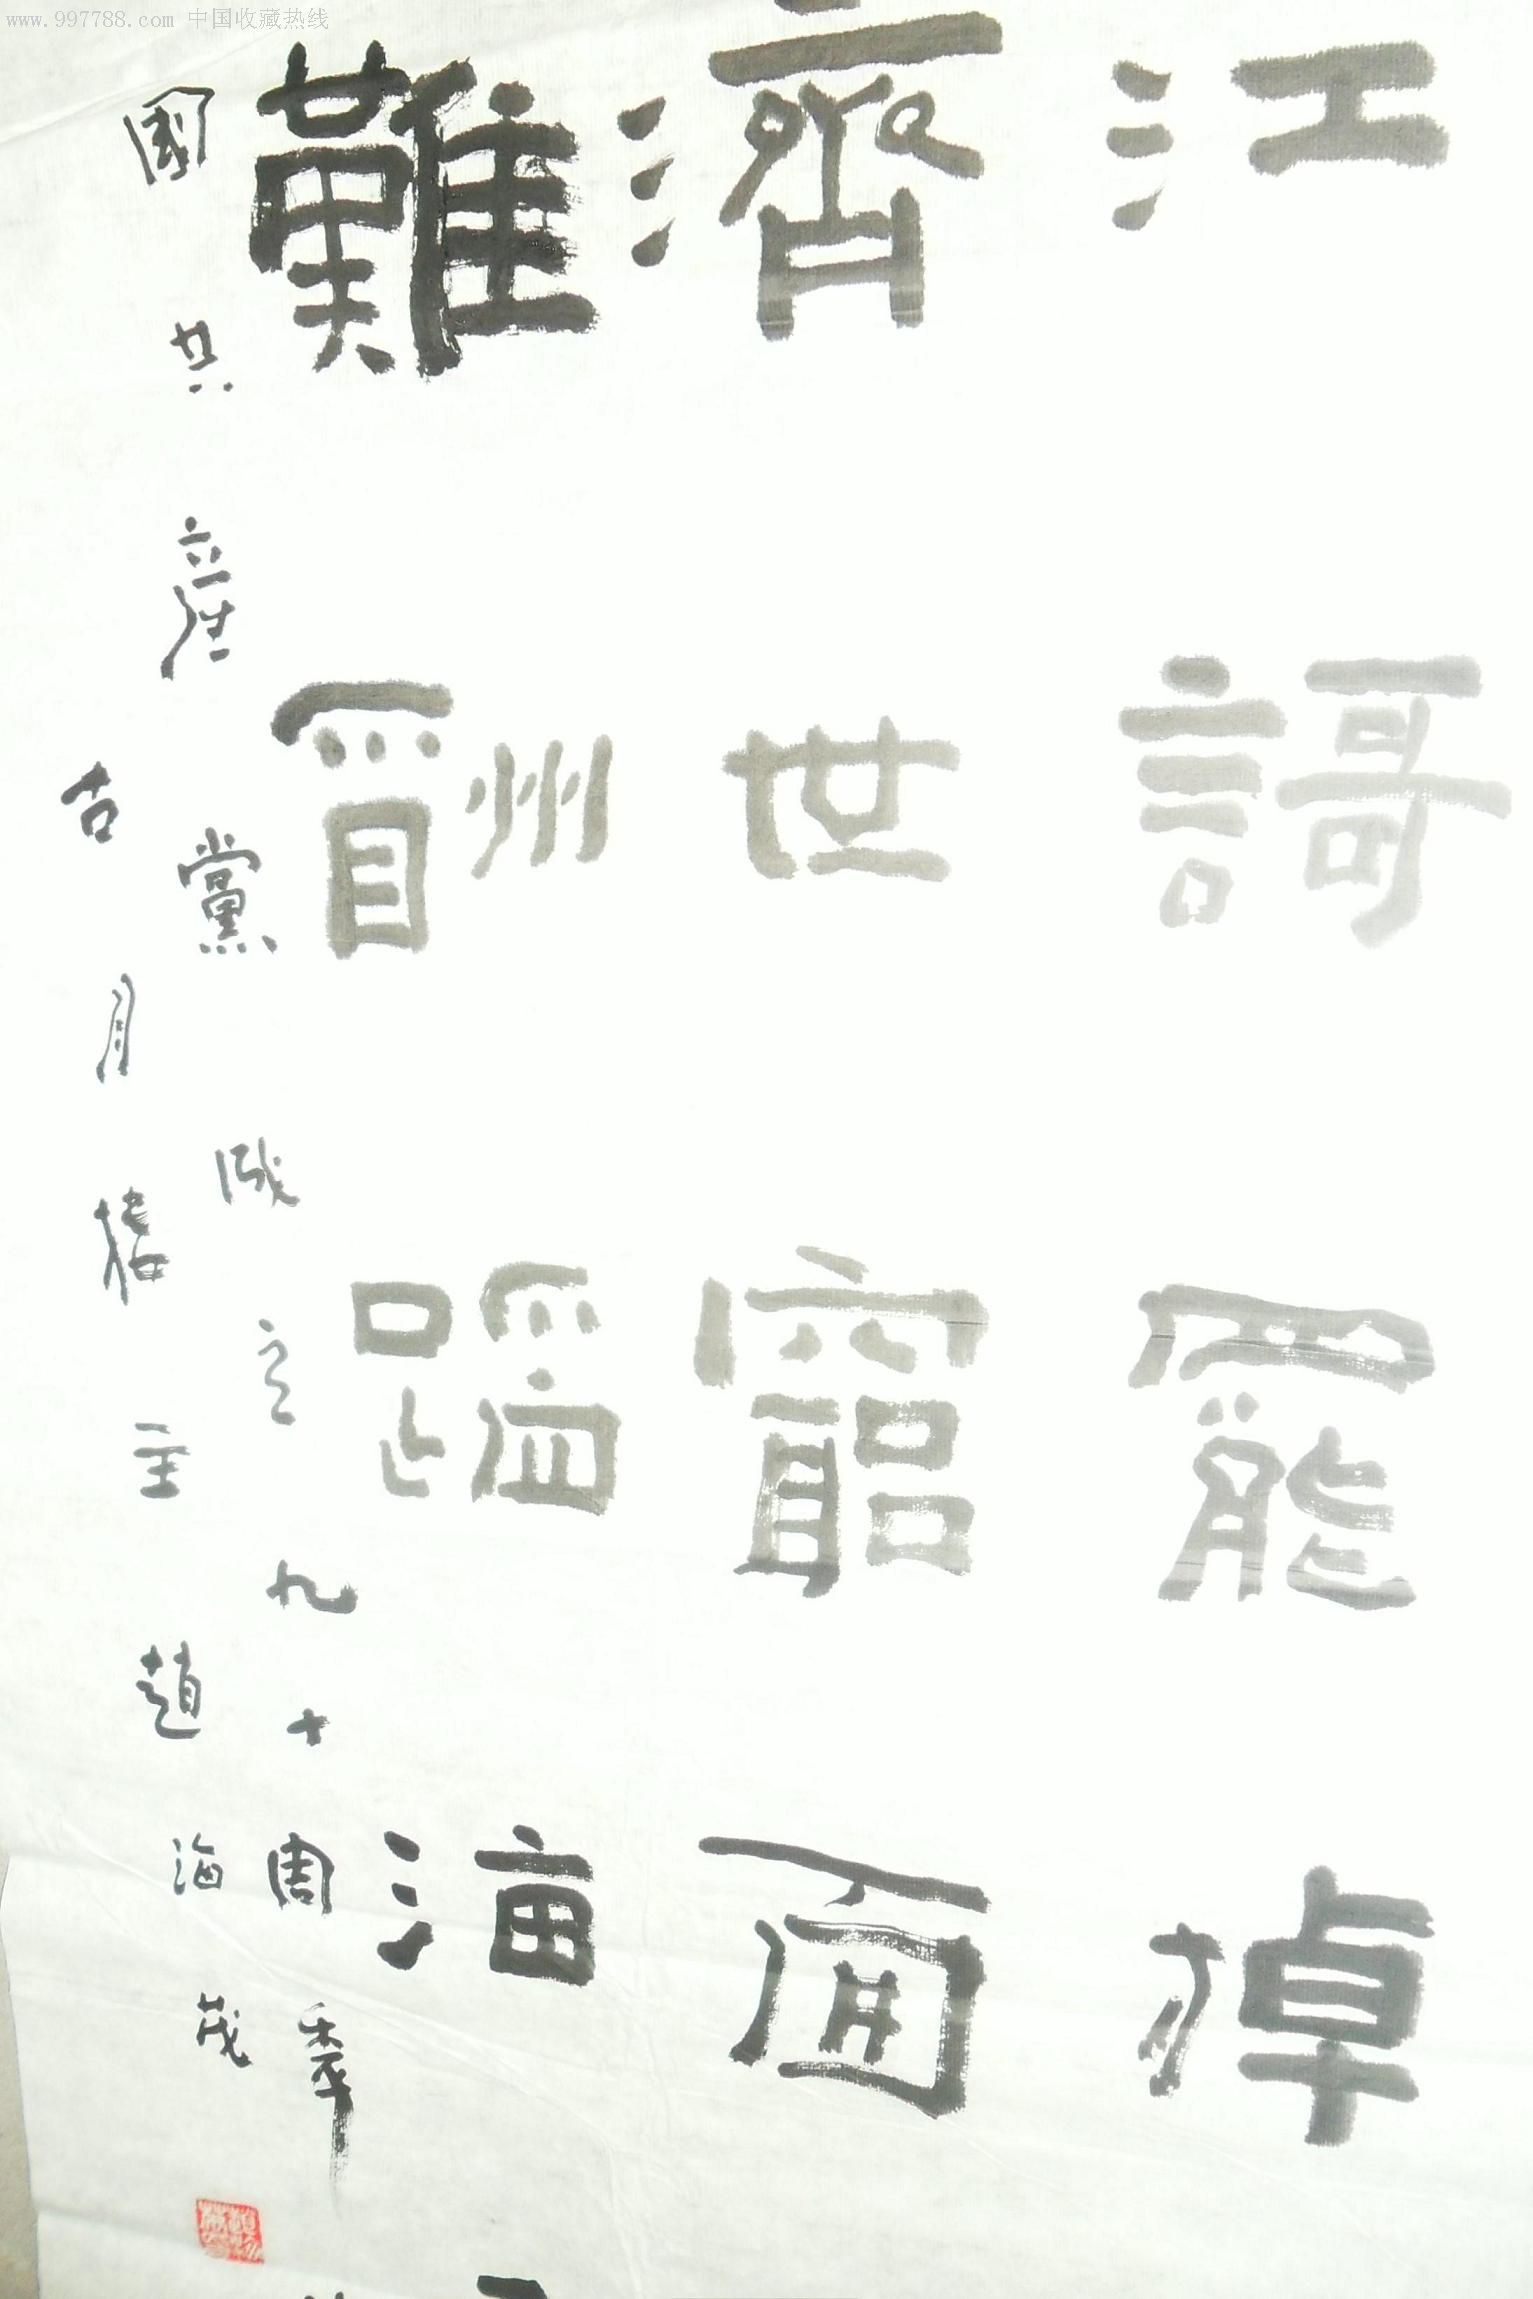 www.997788.com 中国收藏热线
江謌罷掉
濟世窮面
難酬蹈海
國共產黨成立九十周年
古月樓主趙海茂